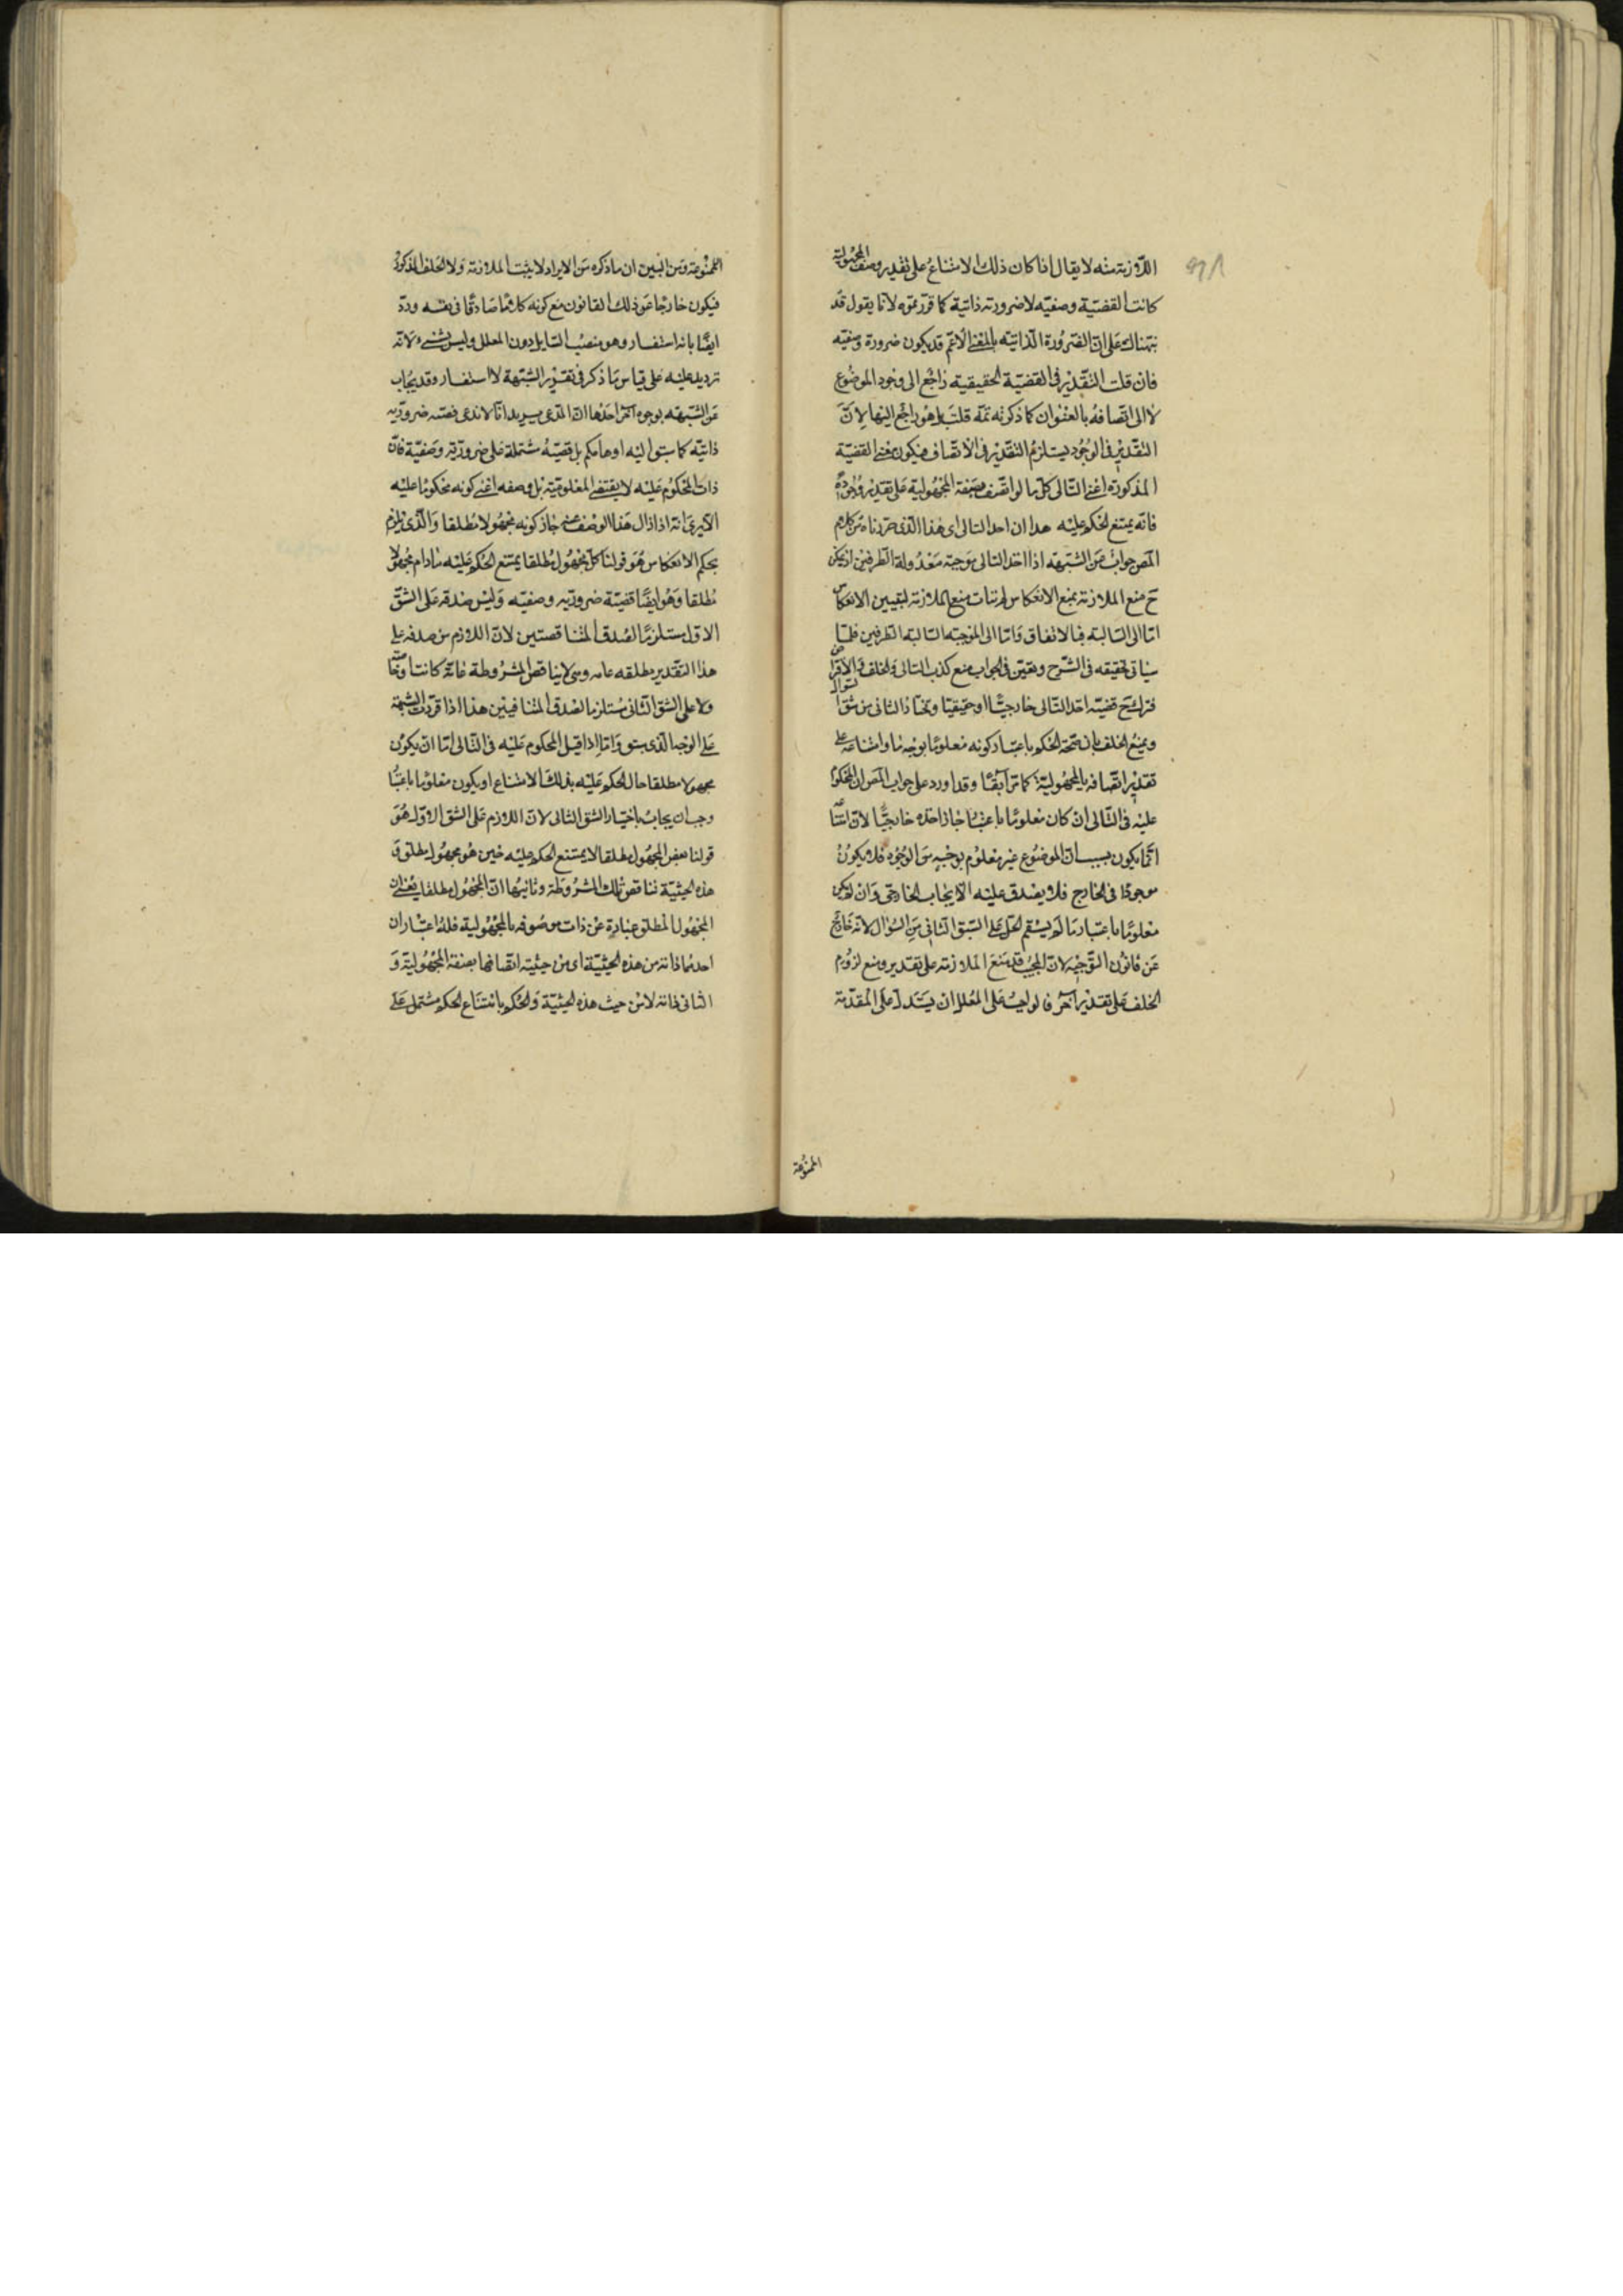 اللازمة منه لا يقال اذا كان ذلك الامتناع على تقدير وصف المجهولية
كانت القضية وصفيه لا ضرورته ذاتية كما قررتموه لانا يقول قد
نبهناك على ان الضرورة الذاتيه بالمعنى الاعم قد يكون ضرورة وصفيه
فان قلت التقدير فى القضية الحقيقيه راجع الى وجود الموضوع
لا الى اتصافه بالعنوان كما ذكرته ثمه قلت بل هو راجع اليها لان
التقدير فى الوجود يستلزم التقدير فى الاتصاف فيكون معنى القضية
المذكورة اعنى التالى كل ما لو اتصف بصفة المجهولية على تقدير وجوده
فانه يمتنع الحكم عليه هذا ان اخذ التالى اى هذا الذى حررناه من كلام
المص جواب عن الشبهه اذا اخذ التالى موجبة معدولة الطرفين اذ يمكن
ح منع الملازمة بمنع الانعكاس
اما الى السالبه فبالاتفاق واما الى الموجبه السالبه الطرفين فلما
سياتى تحقيقه فى الشرح وتعين فى الجواب منع كذب التالى والخلف
قضيه اخذ التالى خارجيا او حقيقيا ويختار الثانى من شقى السؤال
ويمنع الخلف بان صحة الحكم باعتبار كونه معلوما بوجه ما وامتناعه على
تقدير اتصافه بالمجهولية كما مر آنفا وقد اورد على جواب المص ان المحكوم
عليه فى التالى ان كان معلوما باعتبار جاز اخذه خارجيا لان امتناعه
انما يكون بسبب ان الموضوع غير معلوم بوجه من الوجوه فلا يكون
موجودا فى الخارج فلا يصدق عليه الايجاب الخارجى وان لم يكن
معلوما باعتبار ما لم يستقم الحل على الشق الثانى من السؤال لانه خارج
عن قانون التوجيه لان المجيب قد منع الملازمة على تقدير ومنع لزوم
الخلف على تقدير آخر فالواجب على المعلل ان يستدل على المقدمة
الممنوعة
الممنوعة ومن البين ان ما ذكره من الايراد لا يثبت الملازمة ولا الخلف المذكور
فيكون خارجا عن ذلك القانون مع كونه كلاما صادقا فى نفسه ورد
ايضا بانه استفسار وهو منصب السايل دون المعلل وليس بشىء لانه
ترديد عليه على قياس ما ذكر فى تقرير الشبهة لا استفسار وقد يجاب
عن الشبهه بوجوه اخر احدها ان المدعى يريد انا لا ندعى قضيه ضروريه
ذاتية كما سبق اليه اوهامكم بل قضية مشتملة على ضرورية وصفية فان
ذات المحكوم عليه لا يقتضى المعلومية بل وصفه اعنى كونه محكوما عليه
الا يرى انه اذا زال هذا الوصف عنه جاز كونه مجهولا مطلقا والذى يلزم
بحكم الانعكاس هو قولنا كل مجهول مطلقا يمتنع الحكم عليه ما دام مجهولا
مطلقا وهو ايضا قضية ضروريه وصفيه وليس صدقه على الشق
الاول مستلزما لصدق المتناقضتين لان اللازم من صدقه على
هذا التقدير مطلقه عامه وهى لا يناقض المشروطة عامة كانت او خاصة
ولا على الشق الثانى مستلزما لصدق المتنافيين هذا اذا قررت الشبهة
على الوجه الذى سبق واما اذا قيل المحكوم عليه فى التالى اما ان يكون
مجهولا مطلقا حال الحكم عليه بذلك الامتناع او يكون معلوما باعتبار
وجب ان يجاب باختيار الشق الثانى لان اللازم على الشق الاول هو
قولنا بعض المجهول مطلقا لا يمتنع الحكم عليه حين هو مجهول مطلق و
هذه الحينية تناقض تلك المشروطة وثانيها ان المجهول مطلقا
المجهول المطلق عبارة عن ذات موصوفه بالمجهولية فله اعتباران
احدهما ذاته من هذه الحيثية اى من حيثية اتصافها بصفة المجهولية و
الثانى ذاته لا من حيث هذه الحيثية والحكم بامتناع الحكم مشتمل على